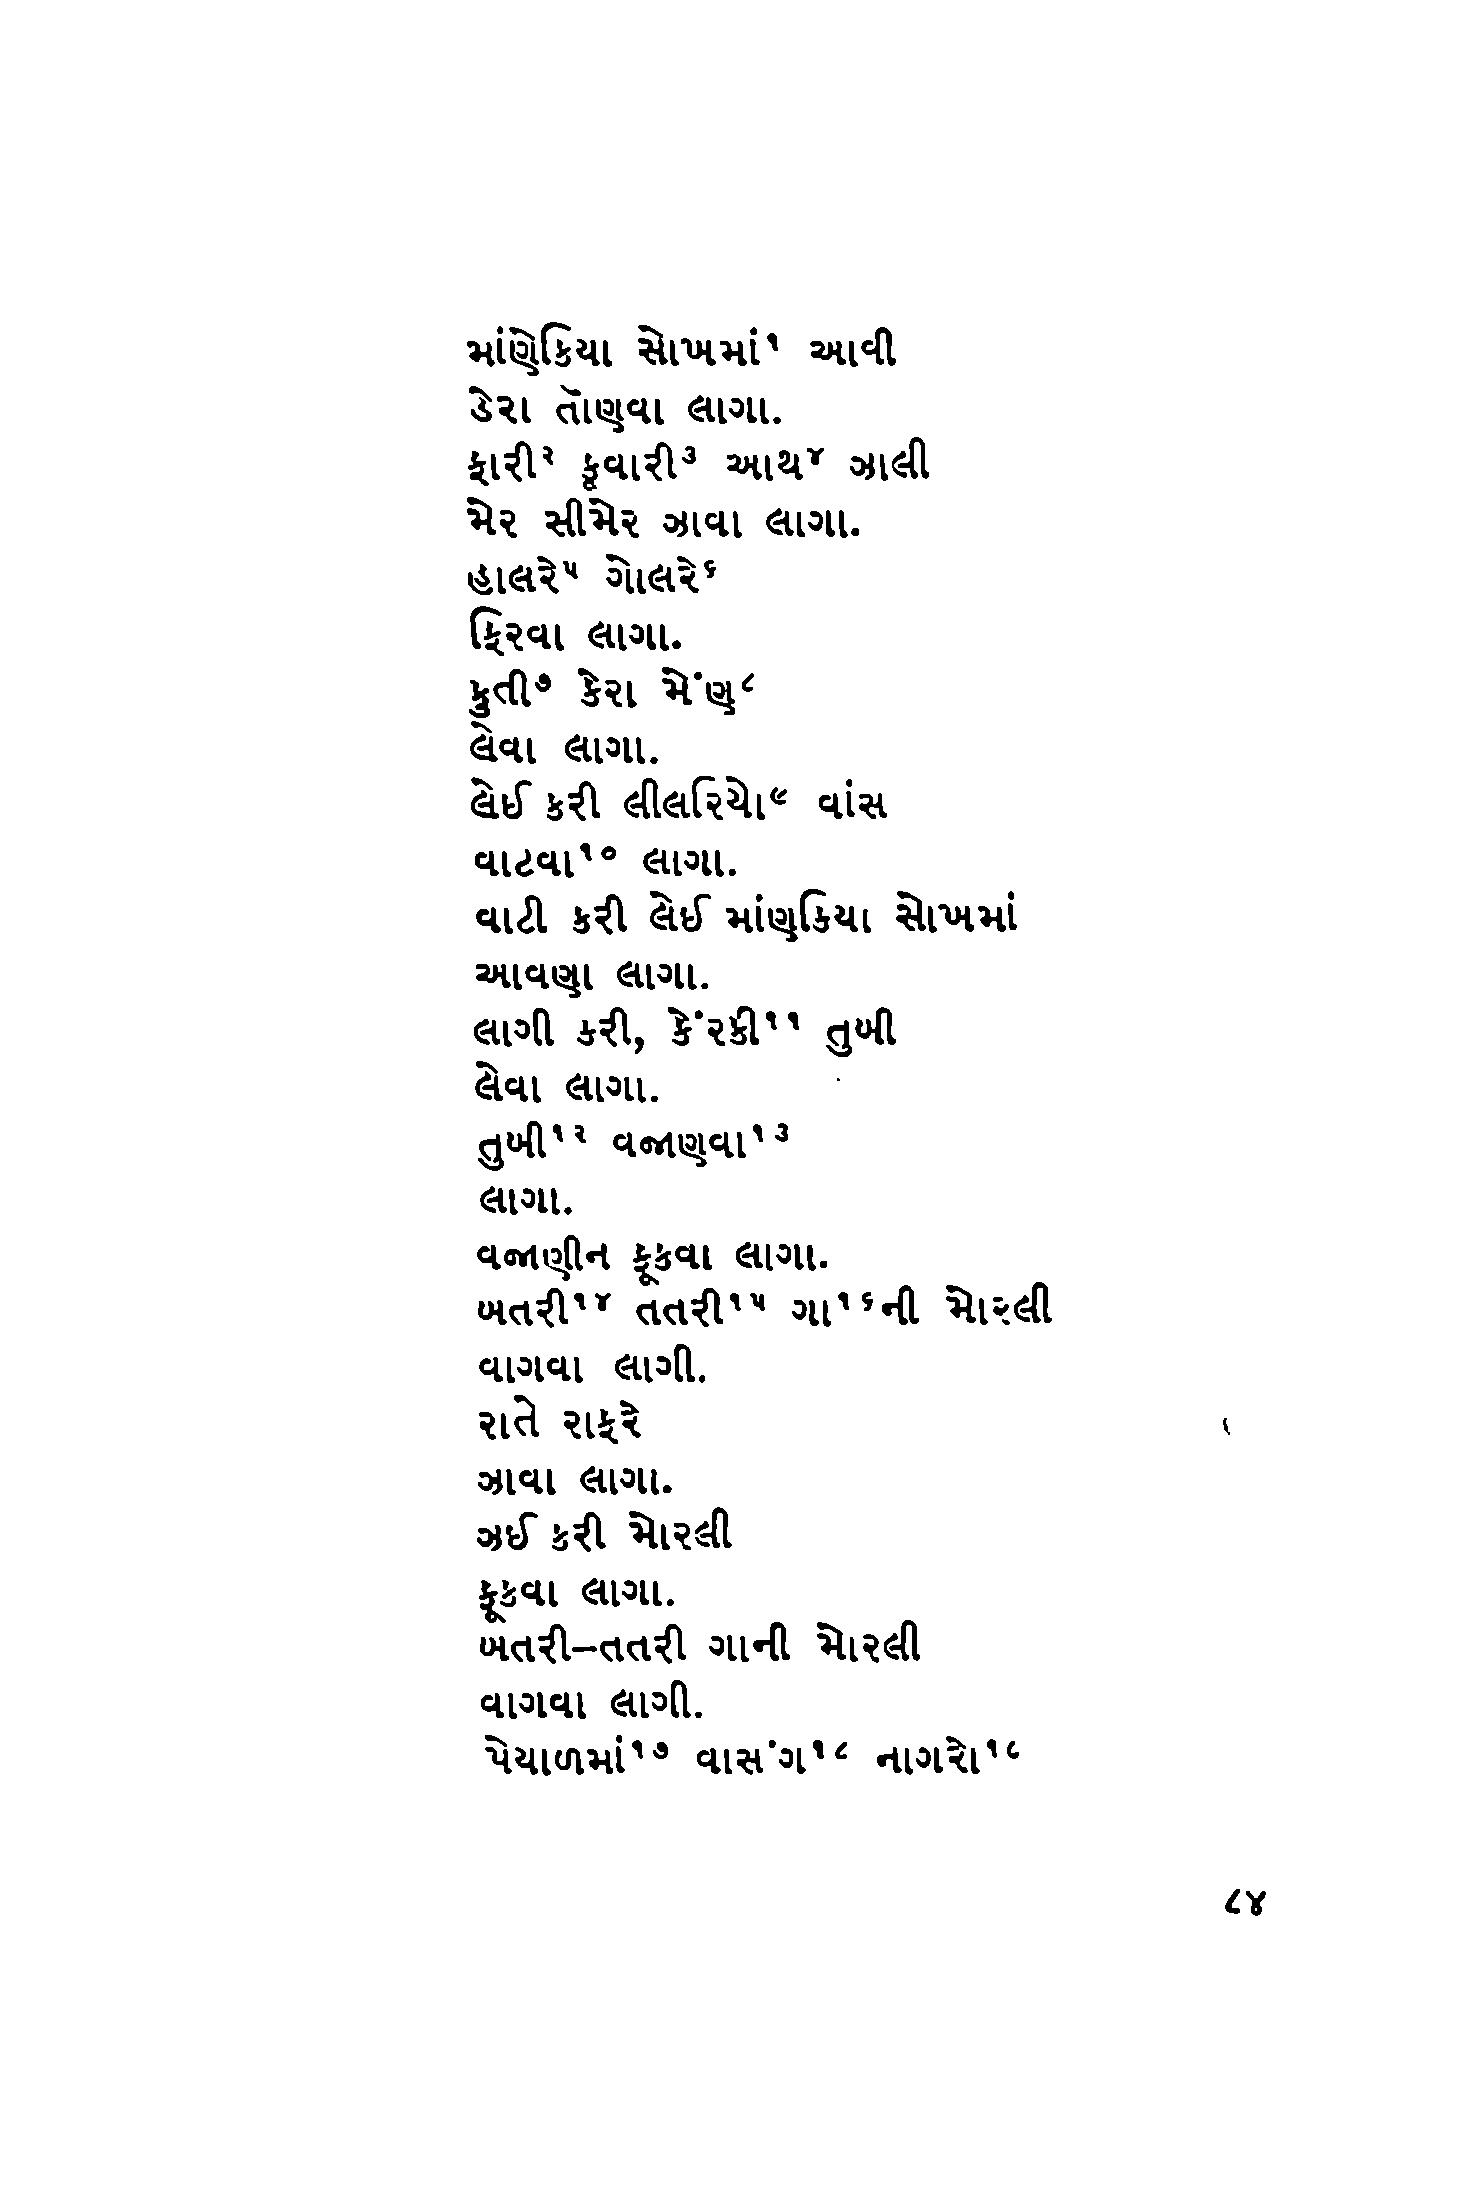 માંણેકિયા સોખમાં૧ આવી
ડેરા તૉણવા લાગા.
ફારી૨ કૂવારી૩ આથ૪ ઝાલી
મેર સીમેર ઝાવા લાગા.
હાલરે૫ ગોલરે૬
ફિરવા લાગા.
કુતી૭ કેરા મેંણુ૮
લેવા લાગા.
લેઈ કરી લીલરિયો૯ વાંસ
વાટવા૧૦ લાગા.
વાટી કરી લેઈ માંણકિયા સોખમાં
આવણા લાગા.
લાગી કરી, કેંરકી૧૧ તુખી
લેવા લાગા.
તુખી૧૨ વજાણવા૧૩
લાગા.
વજાણીન ફૂકવા લાગા.
ખતરી૧૪ તતરી૧૫ ગા૧૬ની મોરલી
વાગવા લાગી.
રાતે રાફરે
ઝાવા લાગા.
ઝઈ કરી મોરલી
ફૂકવા લાગા.
ખતરી–તતરી ગાની મોરલી
વાગવા લાગી.
પેયાળમાં૧૭ વાસંગ૧૮ નાગરો૧૯
૮૪